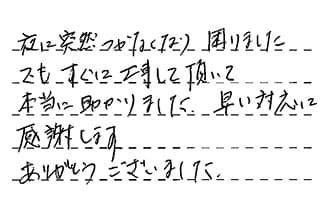 夜に突然つかなくなり 困りました
でも すぐに工事して頂いて
本当に助かりました。早い対応に
感謝します
ありがとうございました。